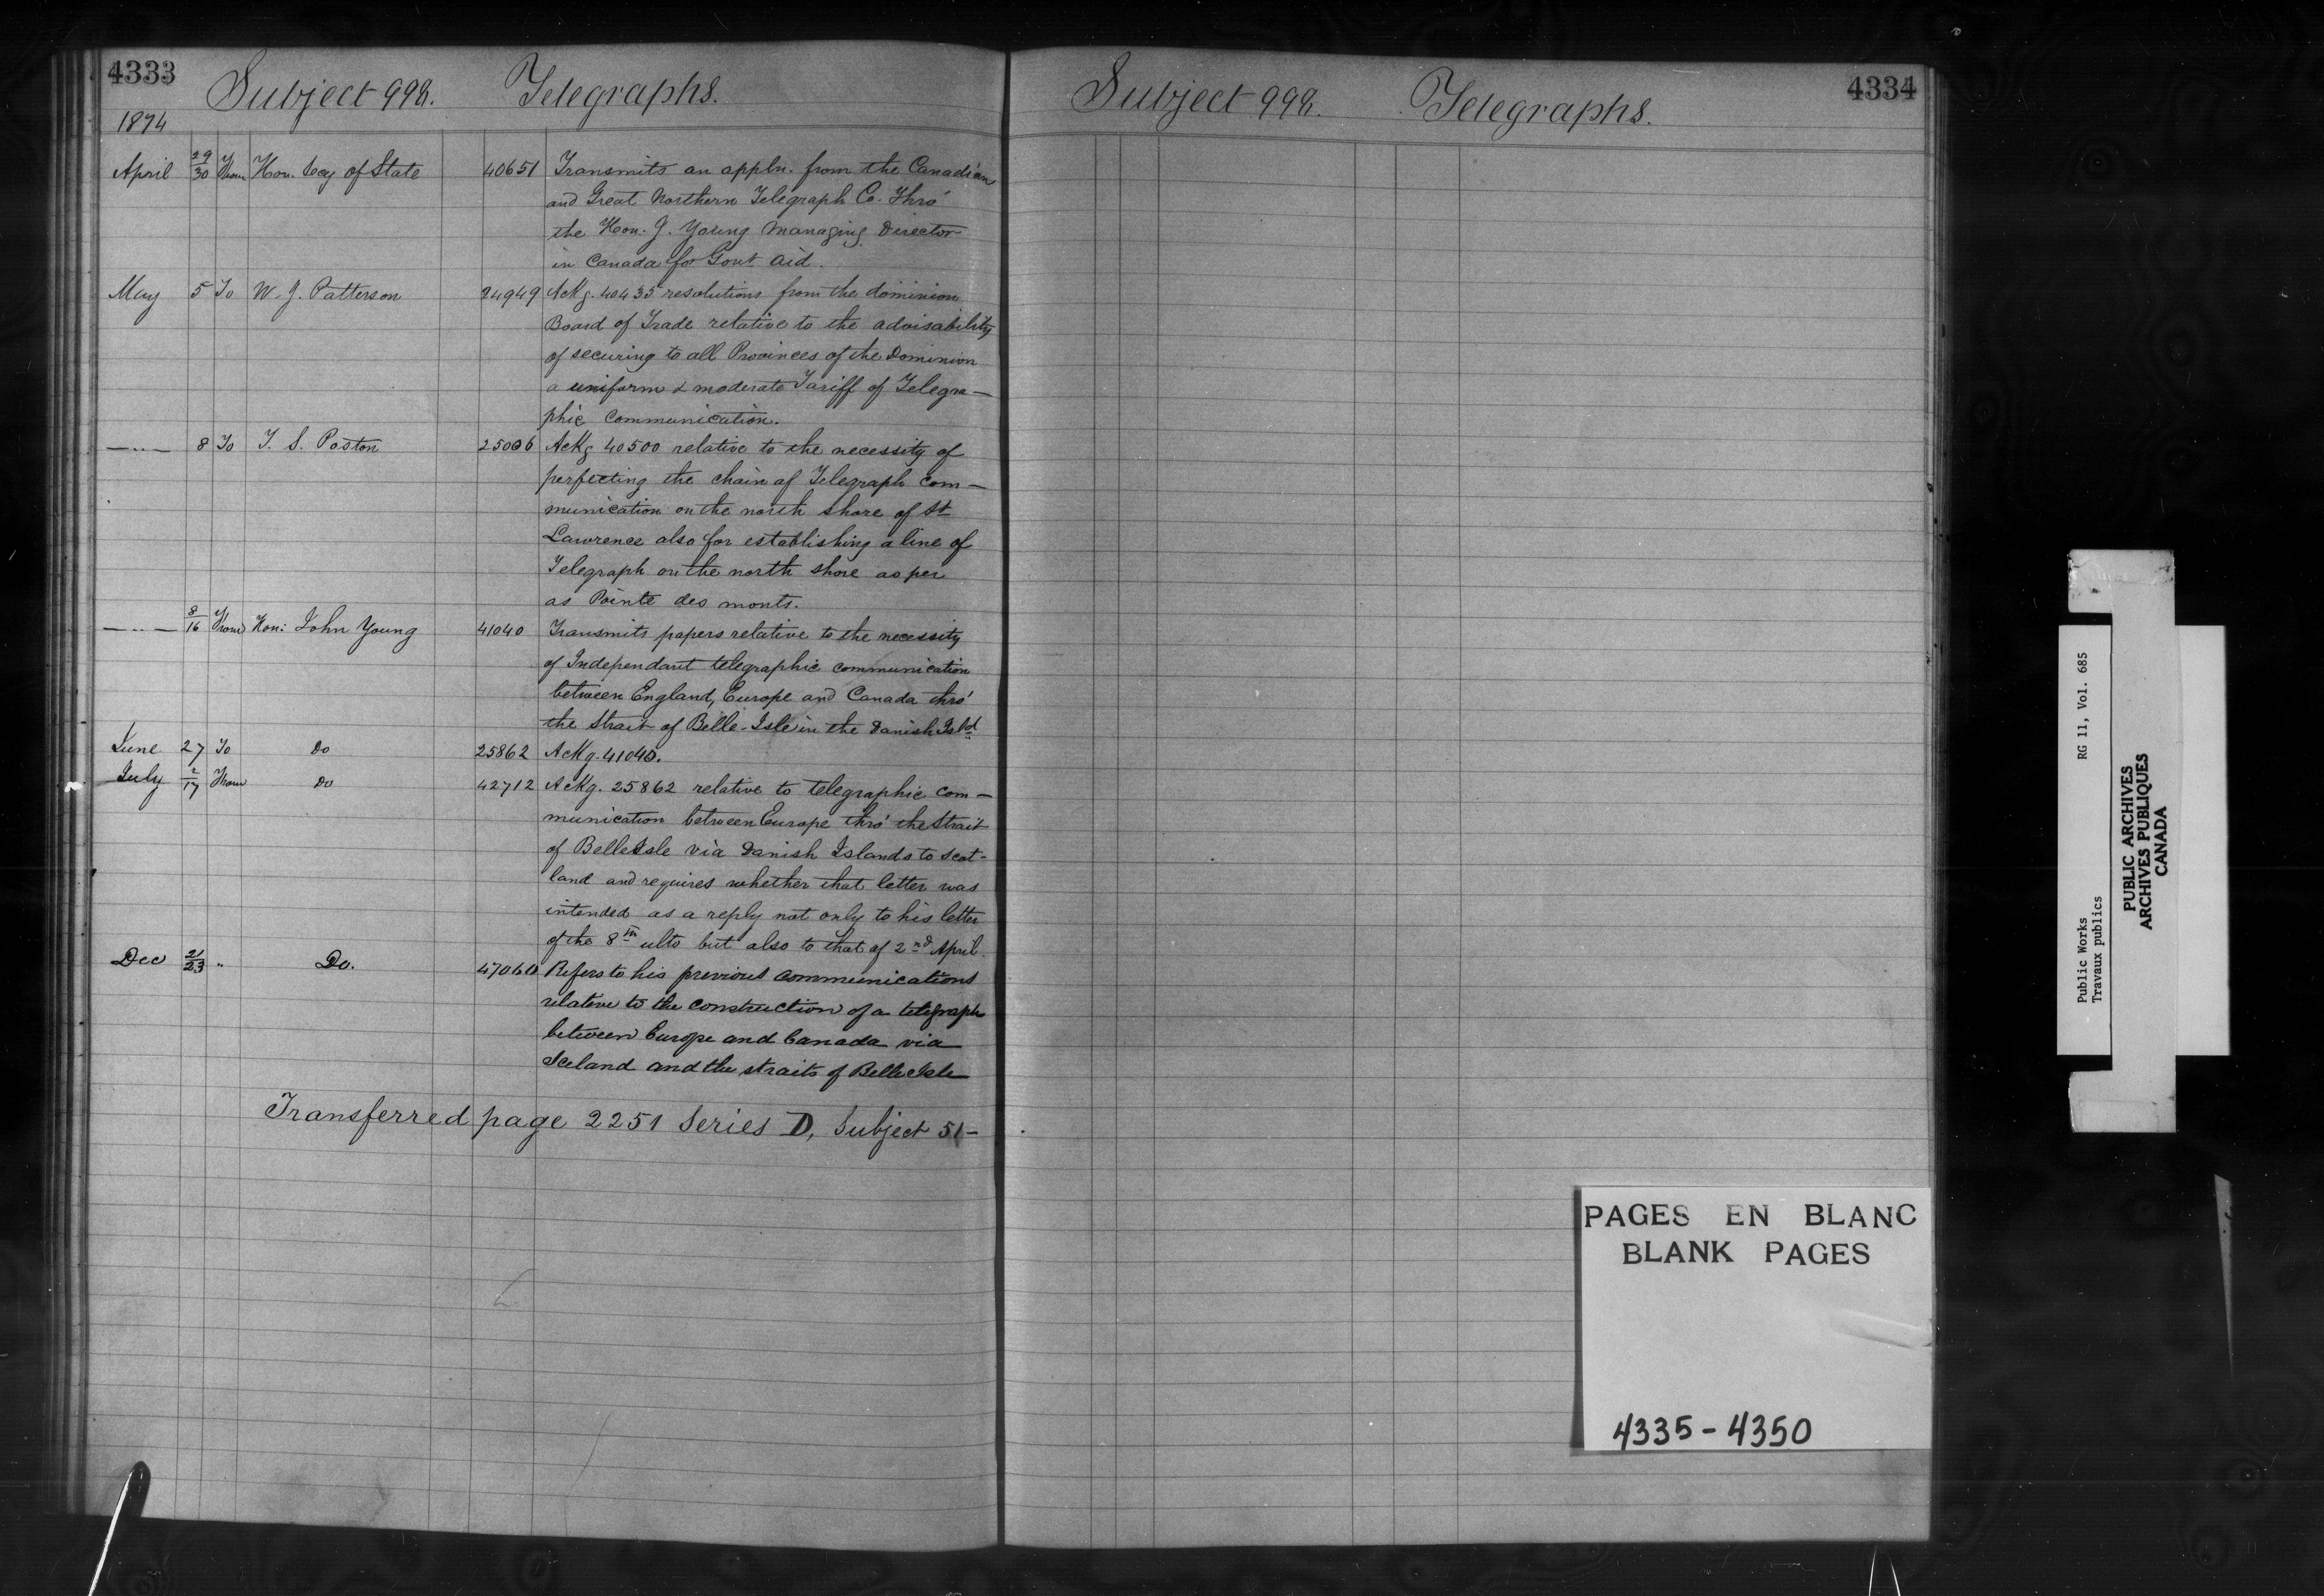 4333
Subject 998. Telegraphs.
1874
April 29/30 From Hon. Secy of State 40651 Transmits an appln. from the Canadian
and Great Northern Telegraph Co. Thro'
the Hon. J. Young Managing Director
in Canada for Govt aid.
May 5 To W. J. Patterson 24949 Ackg. 40435 resolutions from the dominion
Board of Trade relative to the advisability
of securing to all Provinces of the Dominion
a uniform & moderate Tariff of Telegra—
phic Communication.
—"— 8 To T. S. Poston 25006 Ackg 40500 relative to the necessity of
perfecting the chain of Telegraph com—
munication on the north shore of St
Lawrence also for establishing a line of
Telegraph on the north shore as per
as Pointe des monts.
—"— 8/16 From Hon: John Young 41040 Transmits papers relative to the necessity
of Independant telegraphic communication
between England, Europe and Canada thro'
the Strait of Belle-Isle in the Danish Isld
June 27 To Do 25862 Ackg. 41040.
July 2/17 From Do 42712 Ackg. 25862 relative to telegraphic com—
munication between Europe thro' the Strait
of BelleIsle via Danish Islands to Scot-
land and requires whether that letter was
intended as a reply not only to his letter
of the 8th ulto but also to that of 2nd April.
Dec 21/23 " Do. 47060 Refers to his previous communications
relative to the construction of a telegraph
between Europe and Canada via
Iceland and the straits of Belle Isle
Transferred page 2251 Series D, Subject 51—
4334
Subject 998. Telegraphs.
PAGES EN BLANC
BLANK PAGES
4335-4350
Public Works RG 11, Vol. 685
Travaux publics
PUBLIC ARCHIVES
ARCHIVES PUBLIQUES
CANADA